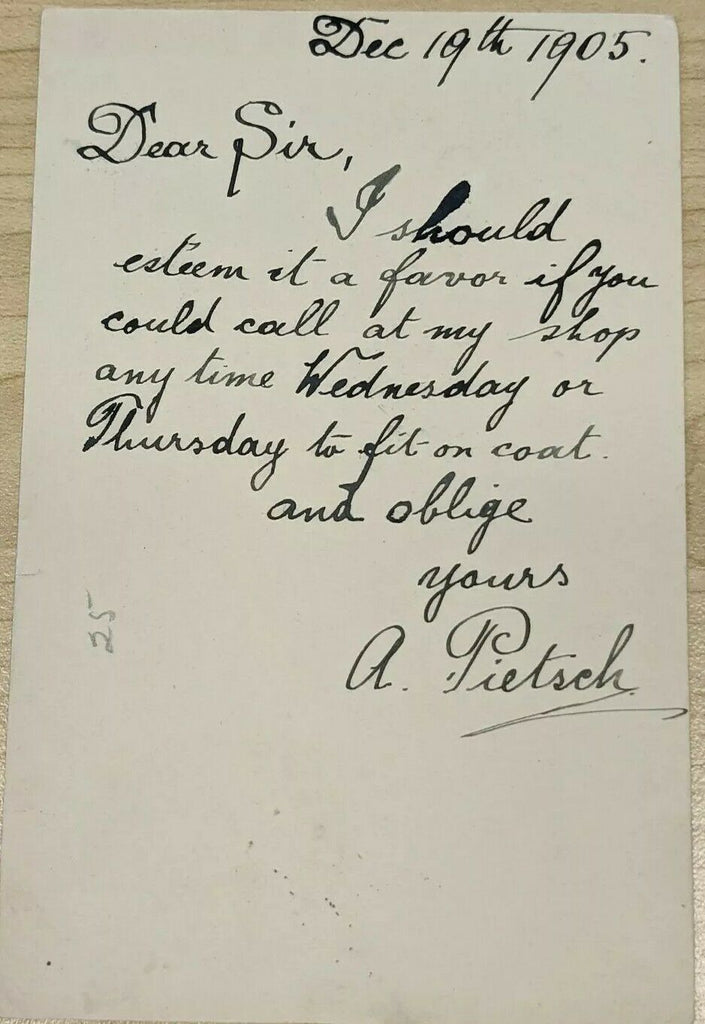 Dec 19th 1905.
Dear Sir,
I should
esteem it a favor if you
could call at my shop
any time Wednesday or
Thursday to fit on coat.
and oblige
yours
A. Pietsch
25